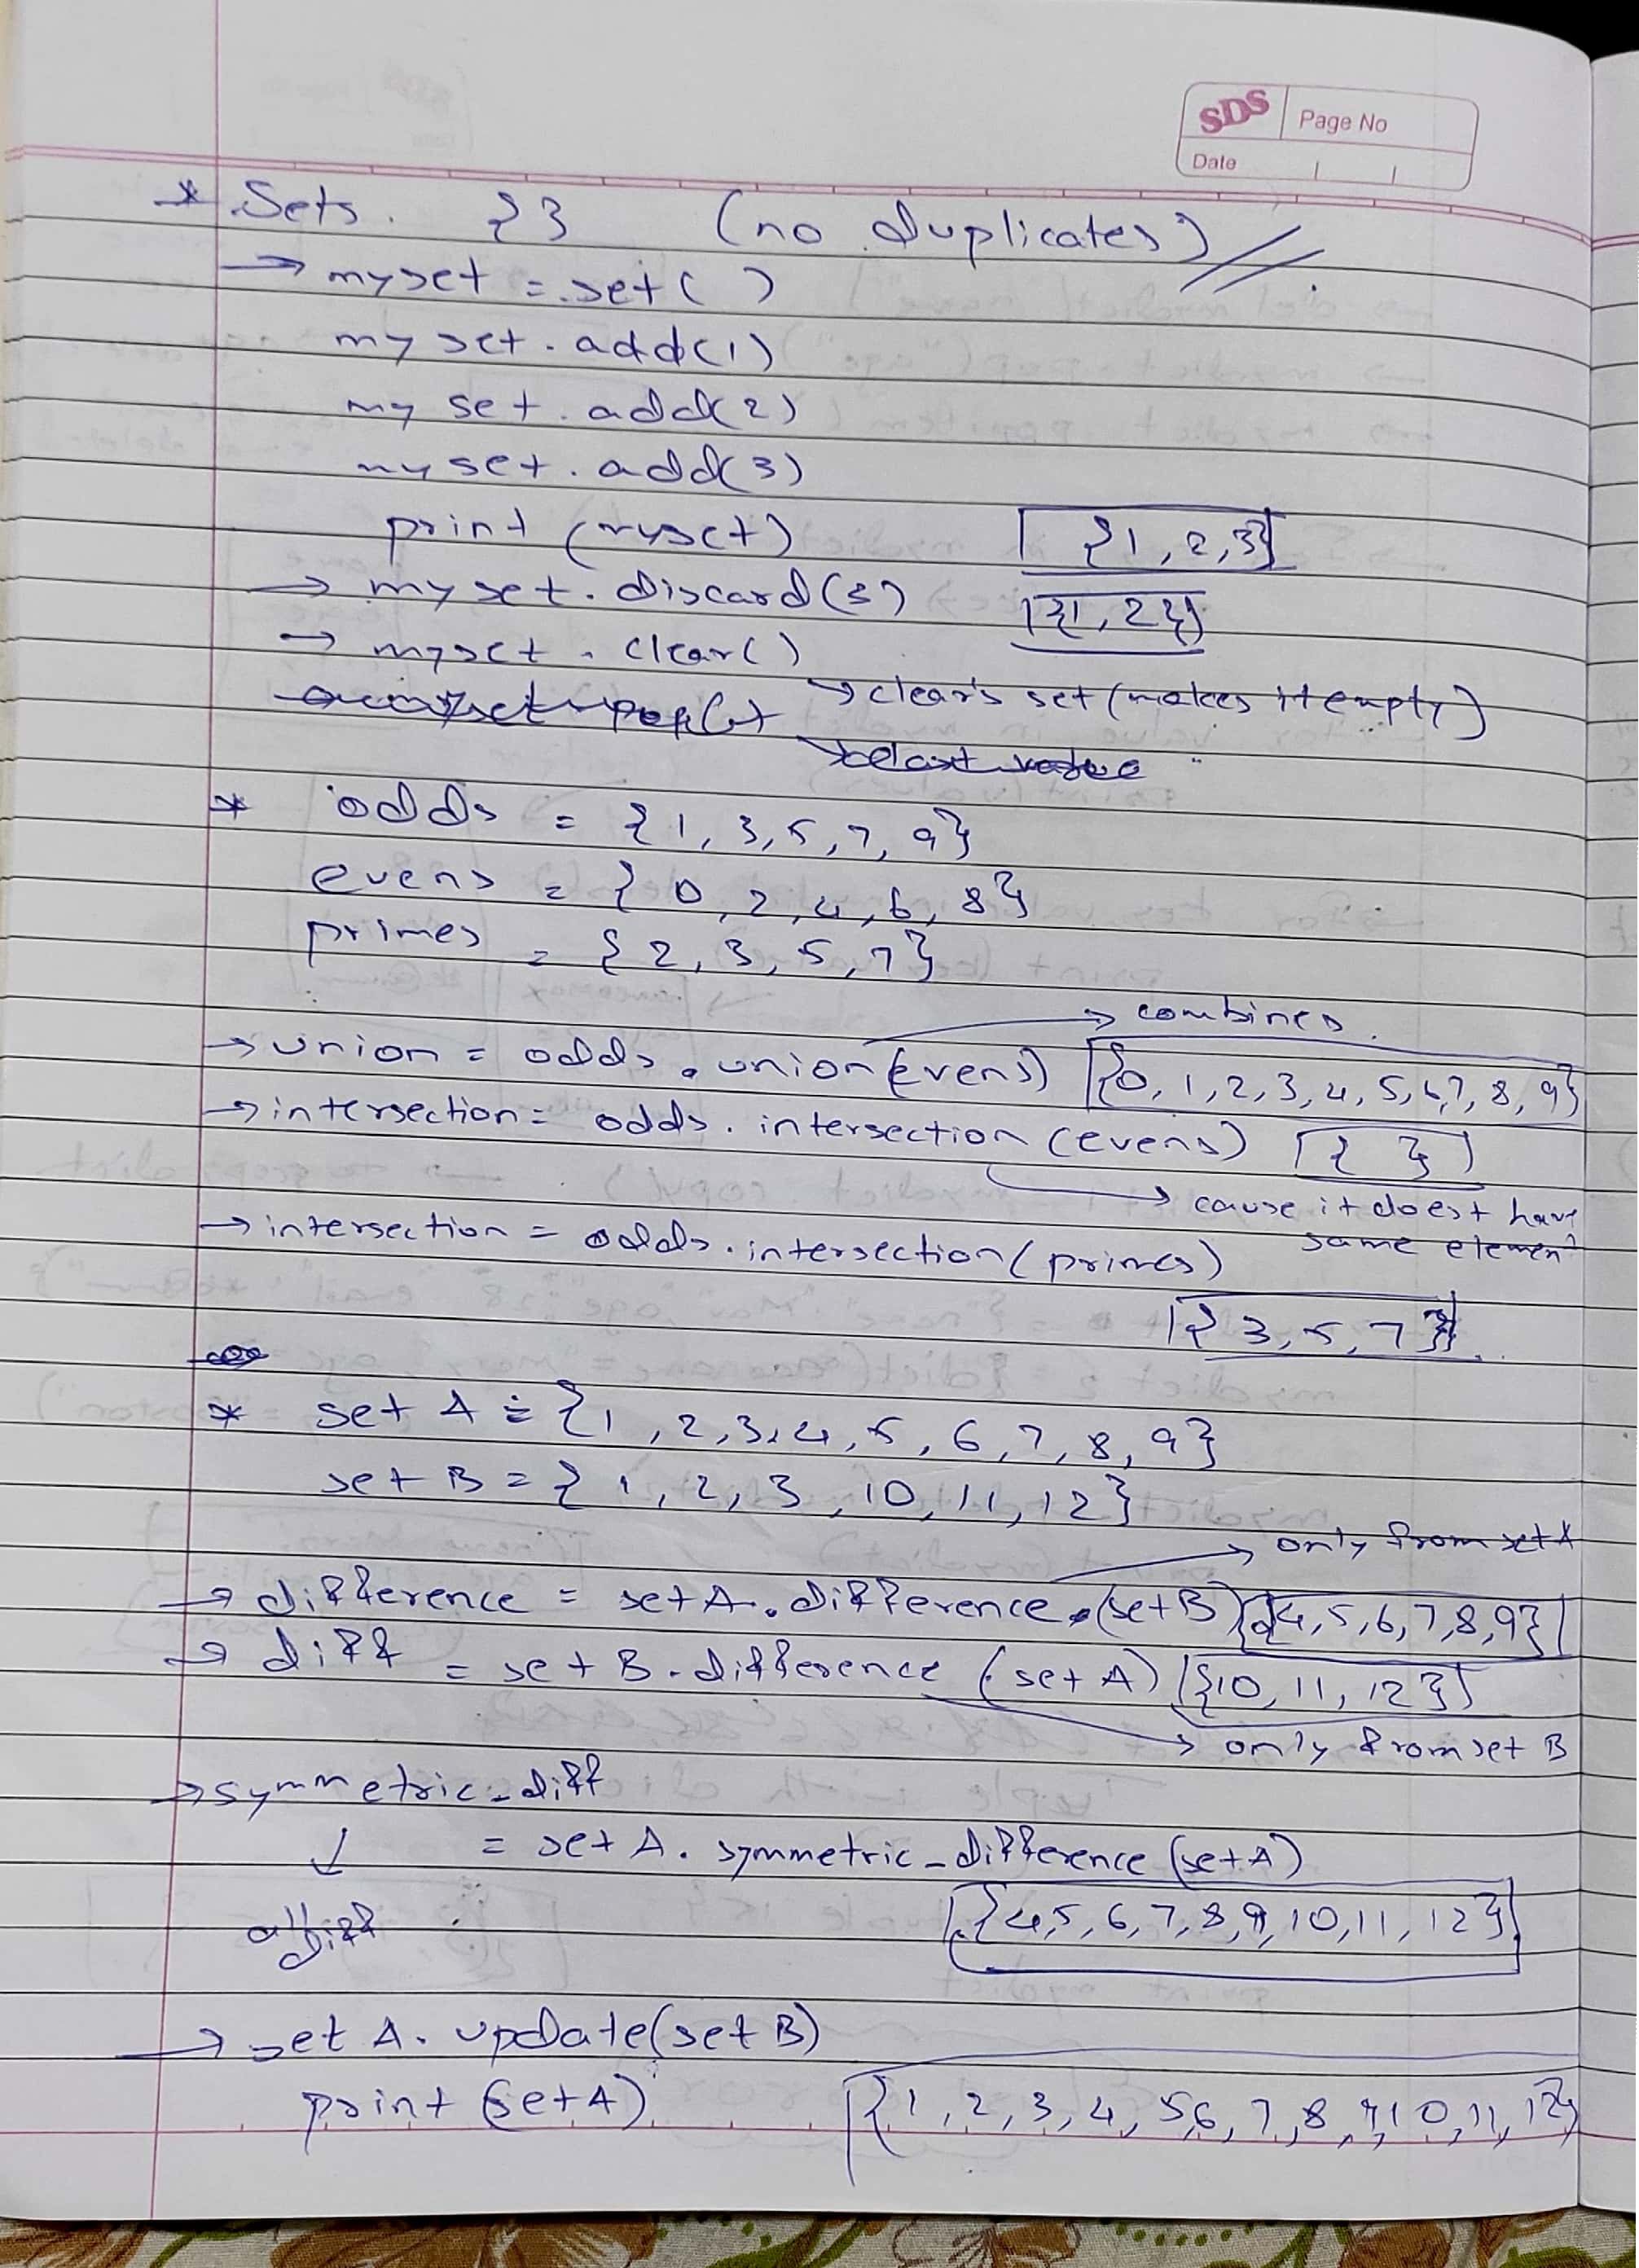 SDS Page No
Date
* Sets. {} (no duplicates)
→ myset = set( )
myset.add(1)
myset.add(2)
myset.add(3)
print (myset) {1, 2, 3}
→ myset.discard(3) {1, 2}
→ myset.clear()
→ clear's set (makes it empty)
* odds = {1, 3, 5, 7, 9}
evens = {0, 2, 4, 6, 8}
primes = {2, 3, 5, 7}
→ combines
→ union = odds.union(evens) {0, 1, 2, 3, 4, 5, 6, 7, 8, 9}
→ intersection = odds.intersection (evens) { }
→ cause it doest have
same element
→ intersection = odds.intersection(primes)
{3, 5, 7}
* set A = {1, 2, 3, 4, 5, 6, 7, 8, 9}
set B = {1, 2, 3, 10, 11, 12}
→ only from set A
→ difference = setA.difference.(setB) {4, 5, 6, 7, 8, 9}
→ diff = set B.difference (set A) {10, 11, 12}
→ only from set B
→ symmetric_diff
↓ = set A. symmetric_difference (setA)
all diff {4, 5, 6, 7, 8, 9, 10, 11, 12}
→ set A. update(set B)
print (setA) {1, 2, 3, 4, 5, 6, 7, 8, 9, 10, 11, 12}